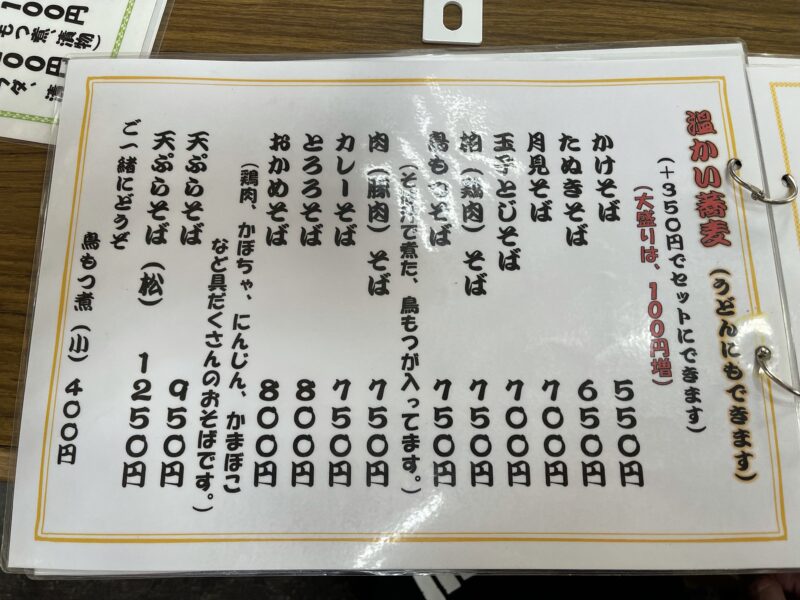 温かい蕎麦 (うどんにもできます)
(+350円でセットにできます)
(大盛りは、100円増)
かけそば 550円
たぬきそば 650円
月見そば 700円
玉子とじそば 700円
(鶏肉)そば 750円
鳥もつそば 750円
で煮た、鳥もつが入ってます。)
肉(豚肉)そば 750円
カレーそば 750円
とろろそば 800円
おかめそば 800円
(鶏肉、かぼちゃ、にんじん、かまぼこ
など具だくさんのおそばです。)
天ぷらそば 950円
天ぷらそば(松) 1250円
ご一緒にどうぞ
鳥もつ煮(小)400円
100円
もつ煮、漬物)
00円